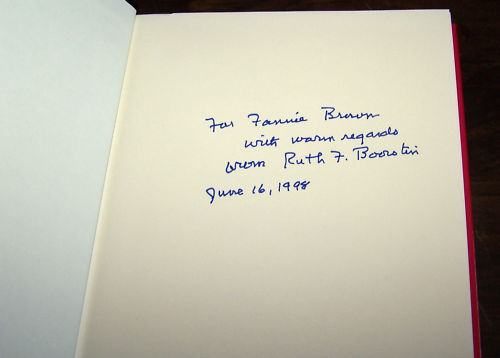 For Fannie Brown
with warm regards
from Ruth F. Boorstin
June 16, 1998